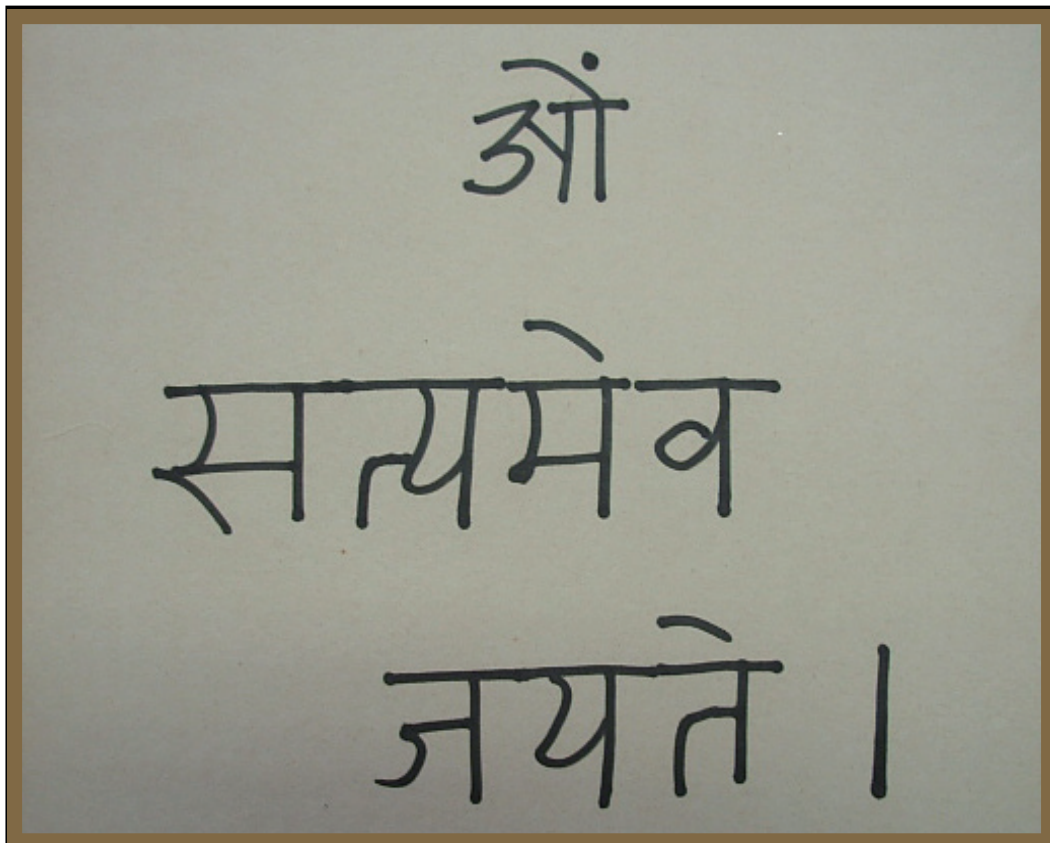 ओं
सत्यमेव
जयते ।